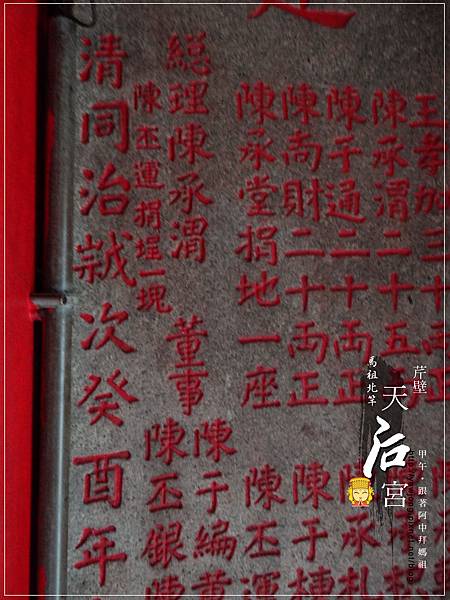 王孝加三十両正
陳承渭二十五
陳于通二十両正
陳尚財二十両正
陳承堂捐地一座
陳承
陳于
陳丕運
総理陳承渭 董事
陳于編
陳丕銀
陳丕運捐堤一塊
清同治歲次癸酉年
芹壁
天后宮
馬祖北竿
甲午。跟著阿中拜媽祖